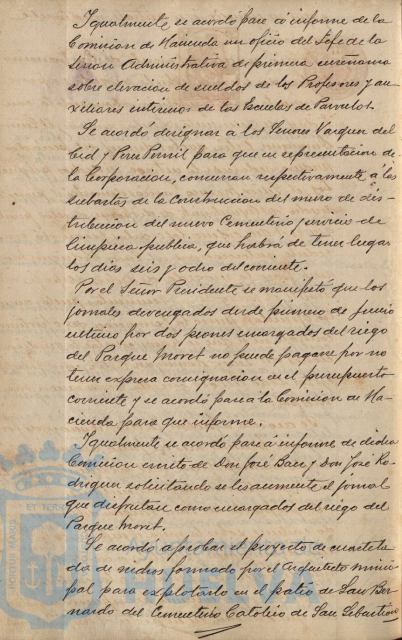 Igualmente se acordó pase á informe de la
Comision de Hacienda un oficio del Jefe de la
Sección Administrativa de primera enseñanza
sobre elevacion de sueldos de los Profesores y au-
xiliares interinos de las Escuelas de Parvulos.
Se acordó designar á los Señores Vazquez del
Cid y Perez Pernil para que en representacion de
la Corporacion, concurran respectivamente á las
subastas de la Construccion del muro de dis-
tribucion del nuevo Cementerio y servicio de
limpieza publica, que habrá de tener lugar
los dias seis y ocho del corriente.
Por el Señor Presidente se manifestó que los
jornales devengados desde primero de Junio
ultimo por dos peones encargados del riego
del Parque Moret no puede pagarse por no
tener expresa consignacion en el presupuesto
corriente y se acordó pase á la Comision de Ha-
cienda para que informe.
Igualmente se acordó pase á informe de dicha
Comision escrito de Don José Baez y Don José Ro-
driguez solicitando se les aumente el jornal
que disfrutan como encargados del riego del
Parque Moret.
Se acordó aprobar el proyecto de cuartela-
da de nichos formado por el Arquitecto munici-
pal para explotarlo en el patio de San Ber-
nardo del Cementerio Catolico de San Sebastian